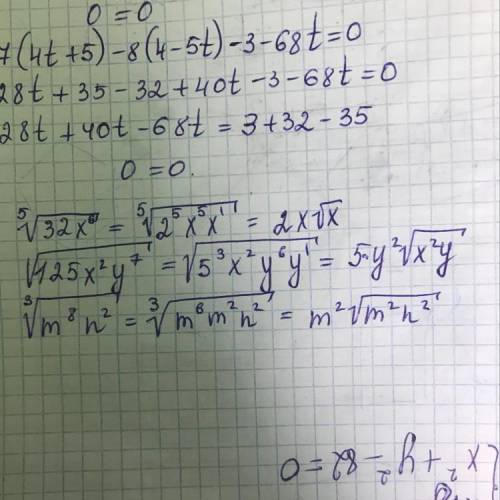 0 = 0
7(4t+5)-8(4-5t)-3-68t=0
28t+35-32+40t-3-68t=0
28t+40t-68t=3+32-35
0=0.
⁵√32x⁶ = ⁵√2⁵x⁵x¹ = 2x√x
√125x²y⁷ = √5³x²y⁶y¹ = 5·y²√x²y
³√m⁸n² = ³√m⁶m²n² = m²√m²n²
x²+y²-82=0